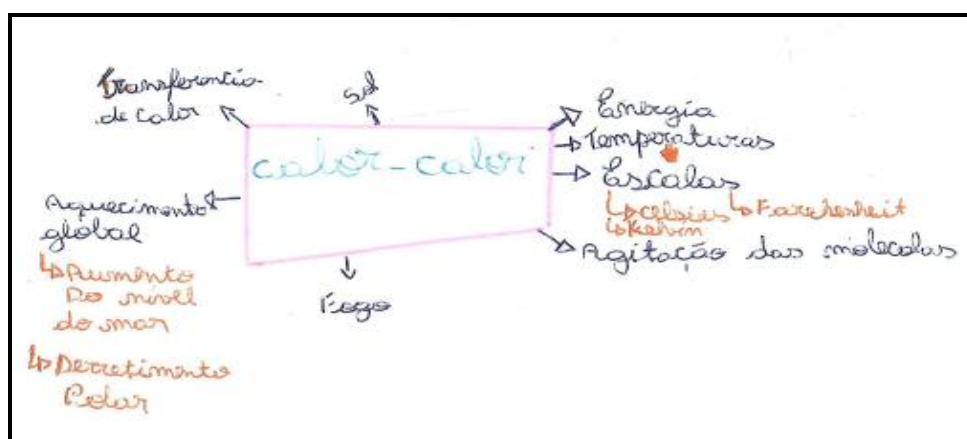 Transferencia
de calor
Sol
Energia
Temperaturas
calor-calor
Escalas
↳Celsius ↳Farehenheit
↳Kelvin
Agitação das molecolas
Aquecimento
global
↳Aumento
Do nivel
do mar
↳Derretimento
Polar
Fogo